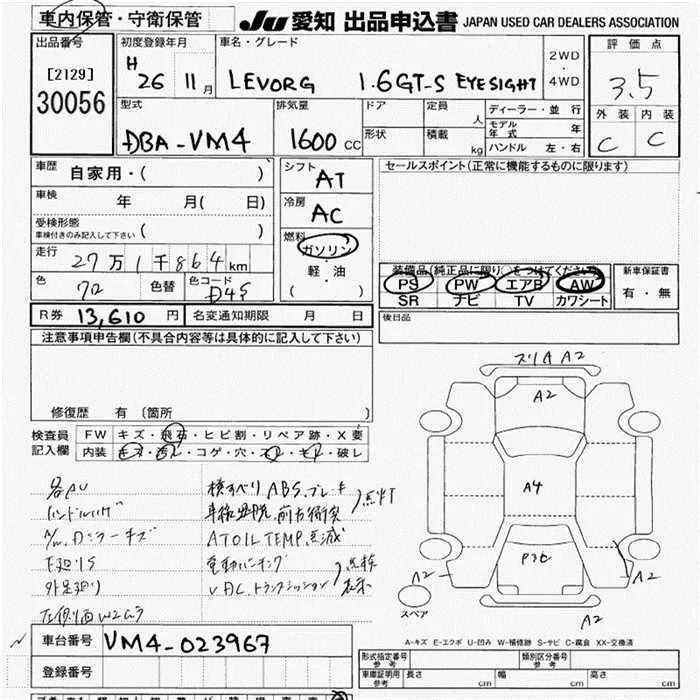 車内保管・守衛保管
JU 愛知 出品申込書 JAPAN USED CAR DEALERS ASSOCIATION
出品番号
[2129]
30056
初度登録年月
H 26 11月
車名・グレード
LEVORG 1.6GT-S EYESIGHT
2WD
4WD
評価点
3.5
外装 内装
C C
型式
DBA-VM4
排気量
1600 CC
ドア
形状
定員
人
積載
kg
ディーラー・並行
モデル年式 年
ハンドル 左・右
車歴
自家用・( )
車検
年 月( 日)
受検形態
車検付きのみ記入して下さい
( )
走行
27万1千864km
色
色替
色コード
D4S
シフト
AT
冷房
AC
燃料
ガソリン
・
軽・油
( )
セールスポイント(正常に機能するものに限ります)
装備品(純正品に限り○をつけてください)
PS PW エアB AW
SR ナビ TV カワシート
新車保証書
有・無
R券 13,610 円
名変通知期限 月 日
後日品
注意事項申告欄(不具合内容等は具体的に記入して下さい)
修復歴 有 〔箇所 〕
検査員
記入欄
FW キズ・飛石・ヒビ割・リペア跡・X要
内装 キズ・汚レ・コゲ・穴・スレ・キレ・破レ
横すべり ABS.ブレーキ
点灯
ハンドルハゲ
車線逸脱.前方衝突
AT OIL TEMP.点滅
電動パーキング
VDC.トランスミッション
点検
表示
A2
A2
A4
A2
A2
A2
スペア
A-キズ E-エクボ U-凹み W-補修跡 S-サビ C-腐食 XX-交換済
車台番号 VM4-023967
登録番号
形式指定番号
参考
類別区分番号
参考
車庫証明用
参考
長さ cm
幅 cm
高さ cm